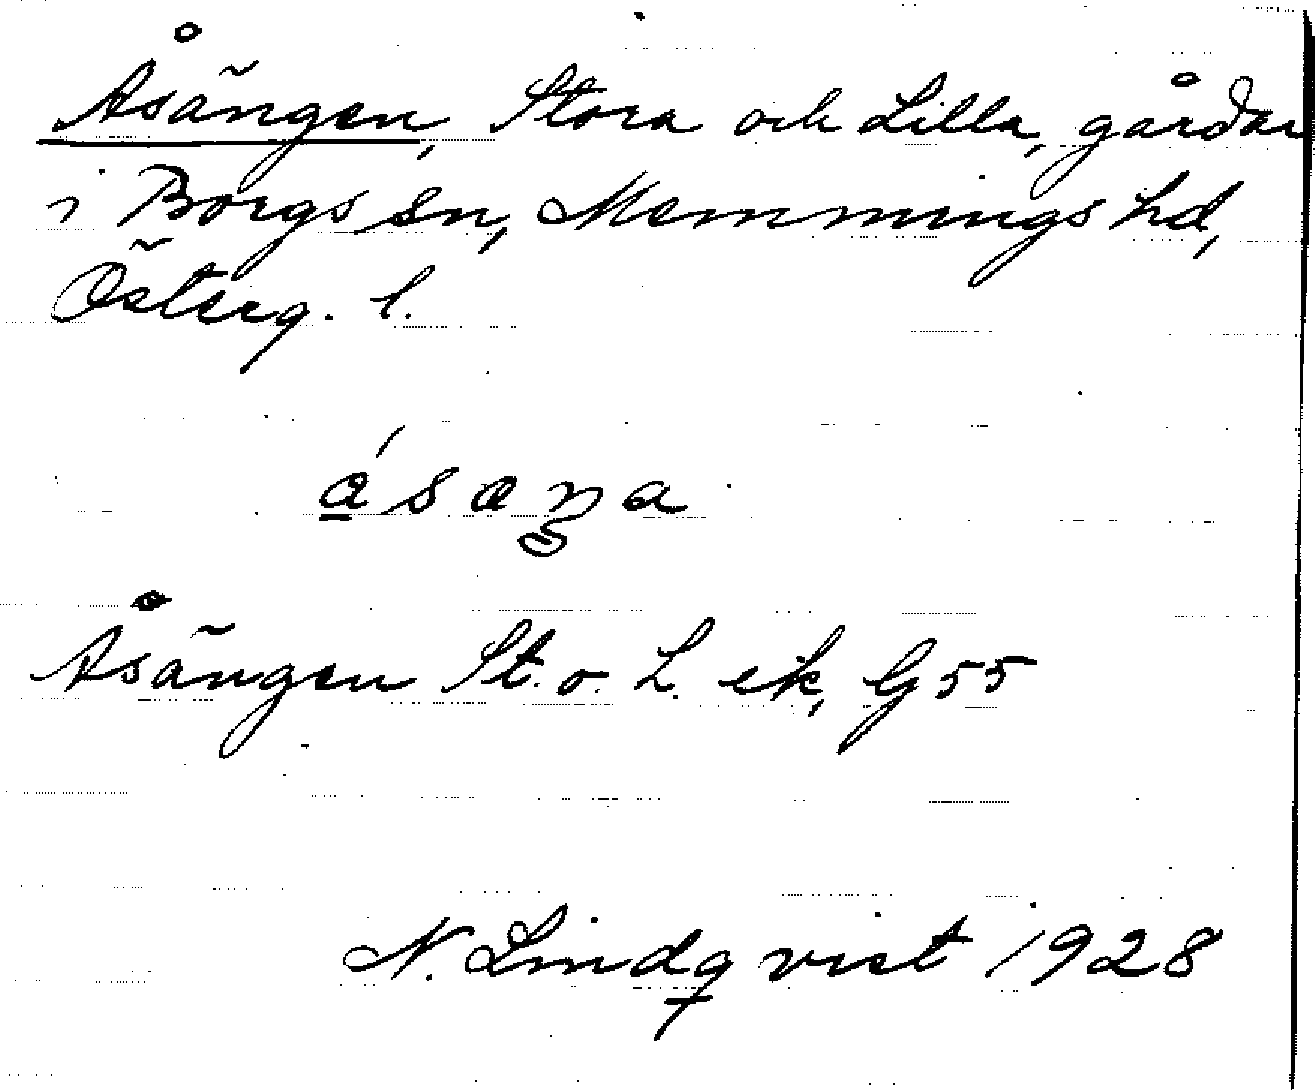 Åsängen, Stora och Lilla, gårdar
i Borgs sn, Memmings hd,
Österg. l.
Åsängen St. o. L. ek, G 55
N. Lindqvist 1928